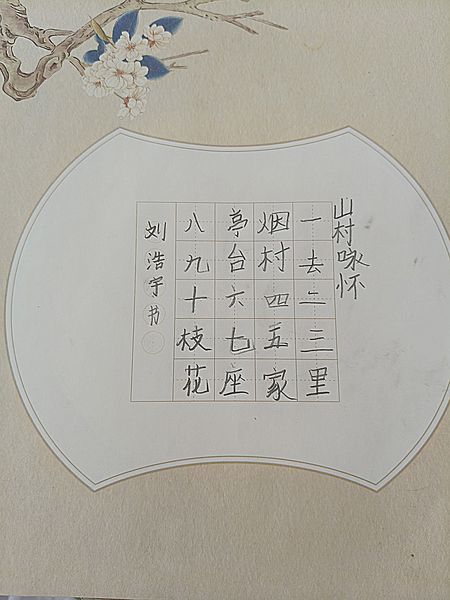 山村咏怀
一去二三里
烟村四五家
亭台六七座
八九十枝花
刘浩宇书